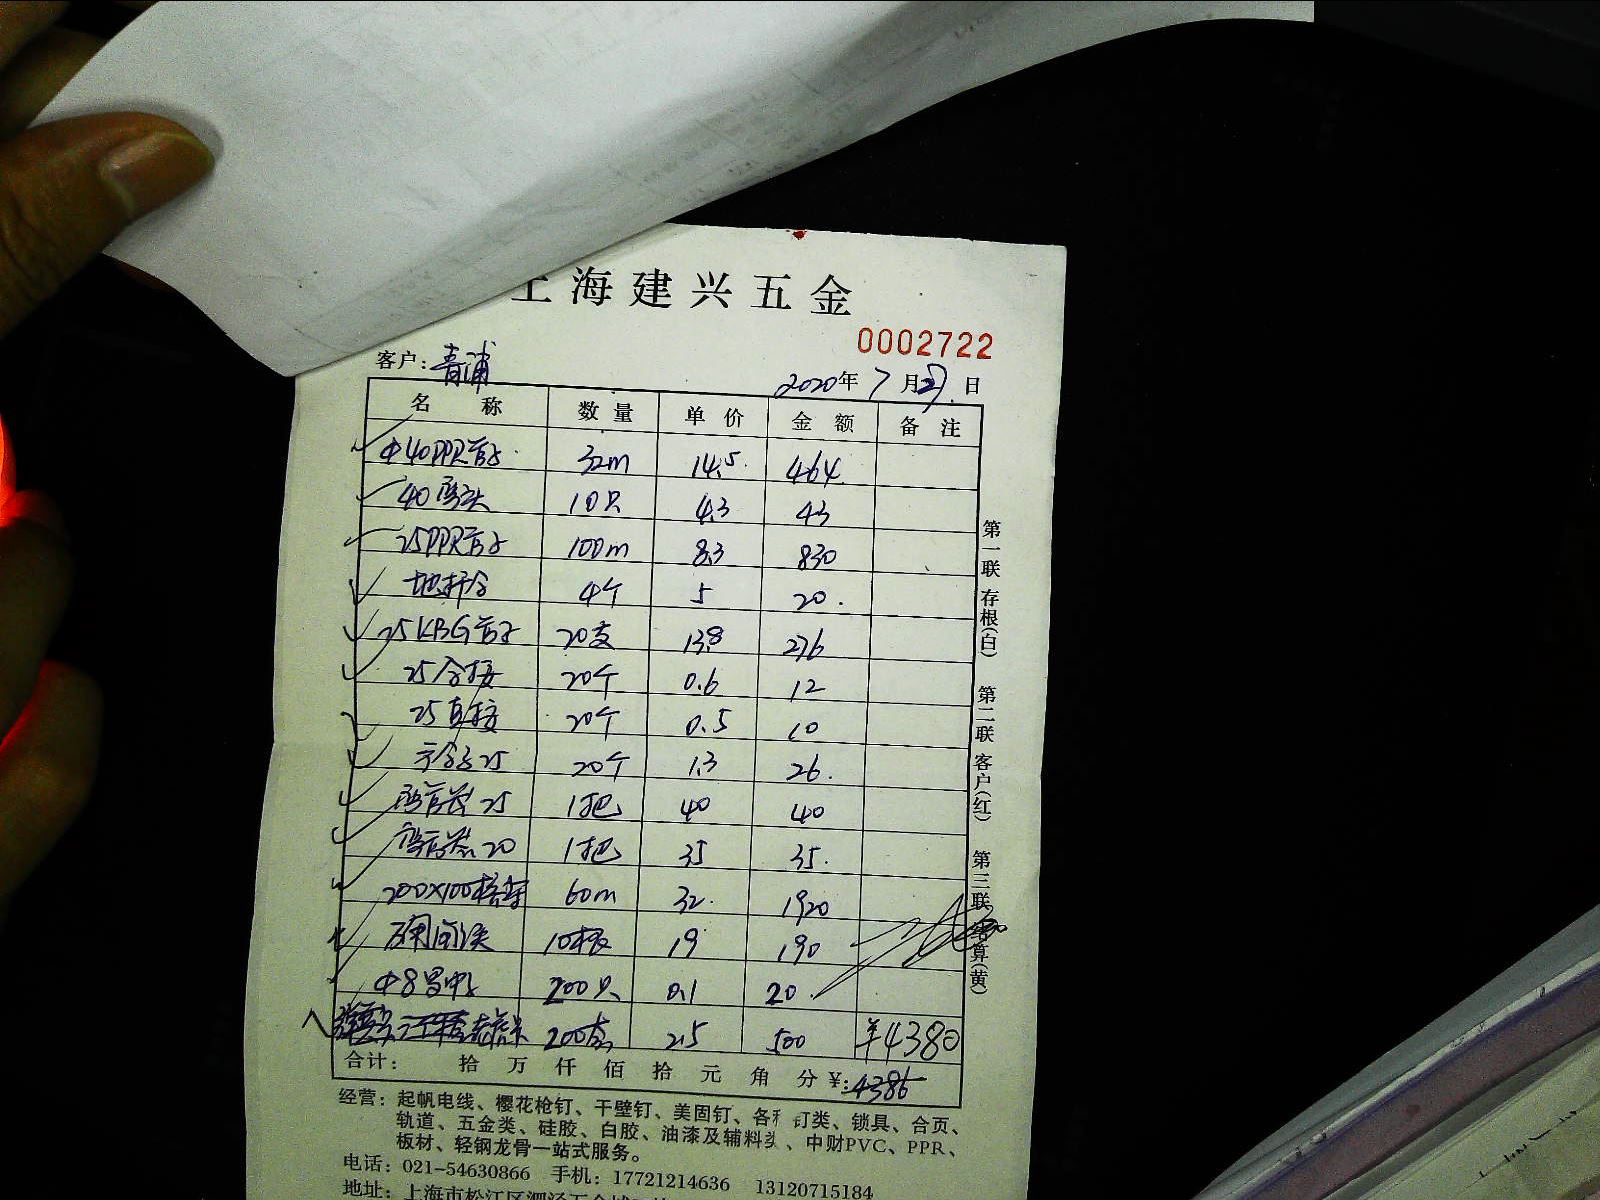 上海建兴五金
0002722
客户：青浦
2020年7月27日
名称 数量 单价 金额 备注
Φ40PPR管子 32m 14.5 464
40弯头 10只 4.3 43
25PPR管子 100m 8.3 830
4个 5 20
25KBG管子 20支 13.8 276
25 20个 0.6 12
25直接 20个 0.5 10
25 20个 1.3 26
弯管器25 1把 40 40
弯管器20 1把 35 35
200×100桥架 60m 32 1920
10根 19 190
Φ8 200只 0.1 20
200套 2.5 500 ¥4380
合计： 拾 万 仟 佰 拾 元 角 分 ¥：4386
第一联 存根(白) 第二联 客户(红) 第三联 结算(黄)
经营：起帆电线、樱花枪钉、干壁钉、美固钉、各种钉类、锁具、合页、
轨道、五金类、硅胶、白胶、油漆及辅料类、中财PVC、PPR、
板材、轻钢龙骨一站式服务。
电话：021-54630866 手机：17721214636 13120715184
地址：上海市松江区泗泾五金城